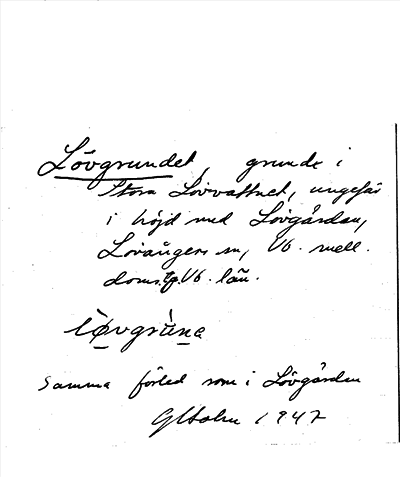 Lövgrundet, grund i
Stora Lövvattnet, ungefär
i höjd med Lövgården,
Lövångers sn, Vb. mell.
doms. tg. Vb. län.
lövgrùna
Samma förled som i Lövgården
G Holm 1947